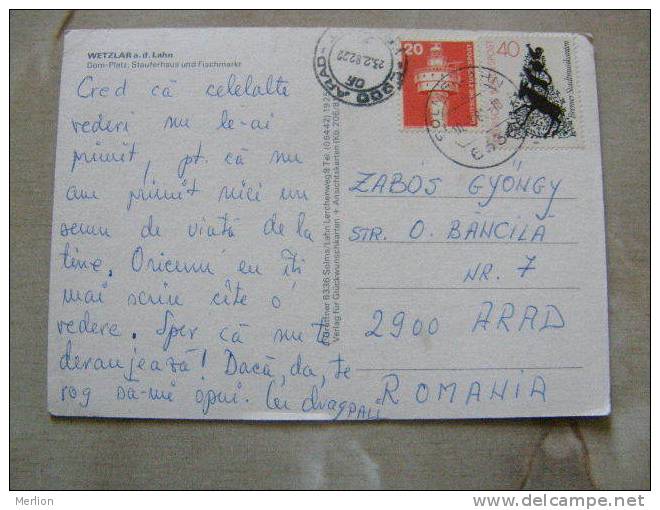 WETZLAR a. d. Lahn
Dom-Platz, Stauferhaus und Fischmarkt
Cred că celelalte
vederi nu le-ai
primit, pt. că nu
am primit nici un
semn de viață de la
tine. Oricum eu îți
mai scriu cîte o
vedere. Sper că nu te
deranjează! Dacă, da, te
rog să-mi spui. Cu drag
PALI
Verlag für Glückwunschkarten + Ansichtskarten
6336 Solms/Lahn Lerchenweg 8 Tel. (06442)
20
DEUTSCHE BUNDESPOST
40
Bremer Stadtmusikanten
2900 ARAD
23.12.82.22
ZABÓS GYÖNGY
STR. O. BĂNCILĂ
NR. 7
2900 ARAD
ROMANIA
Merlion
www.delcampe.net